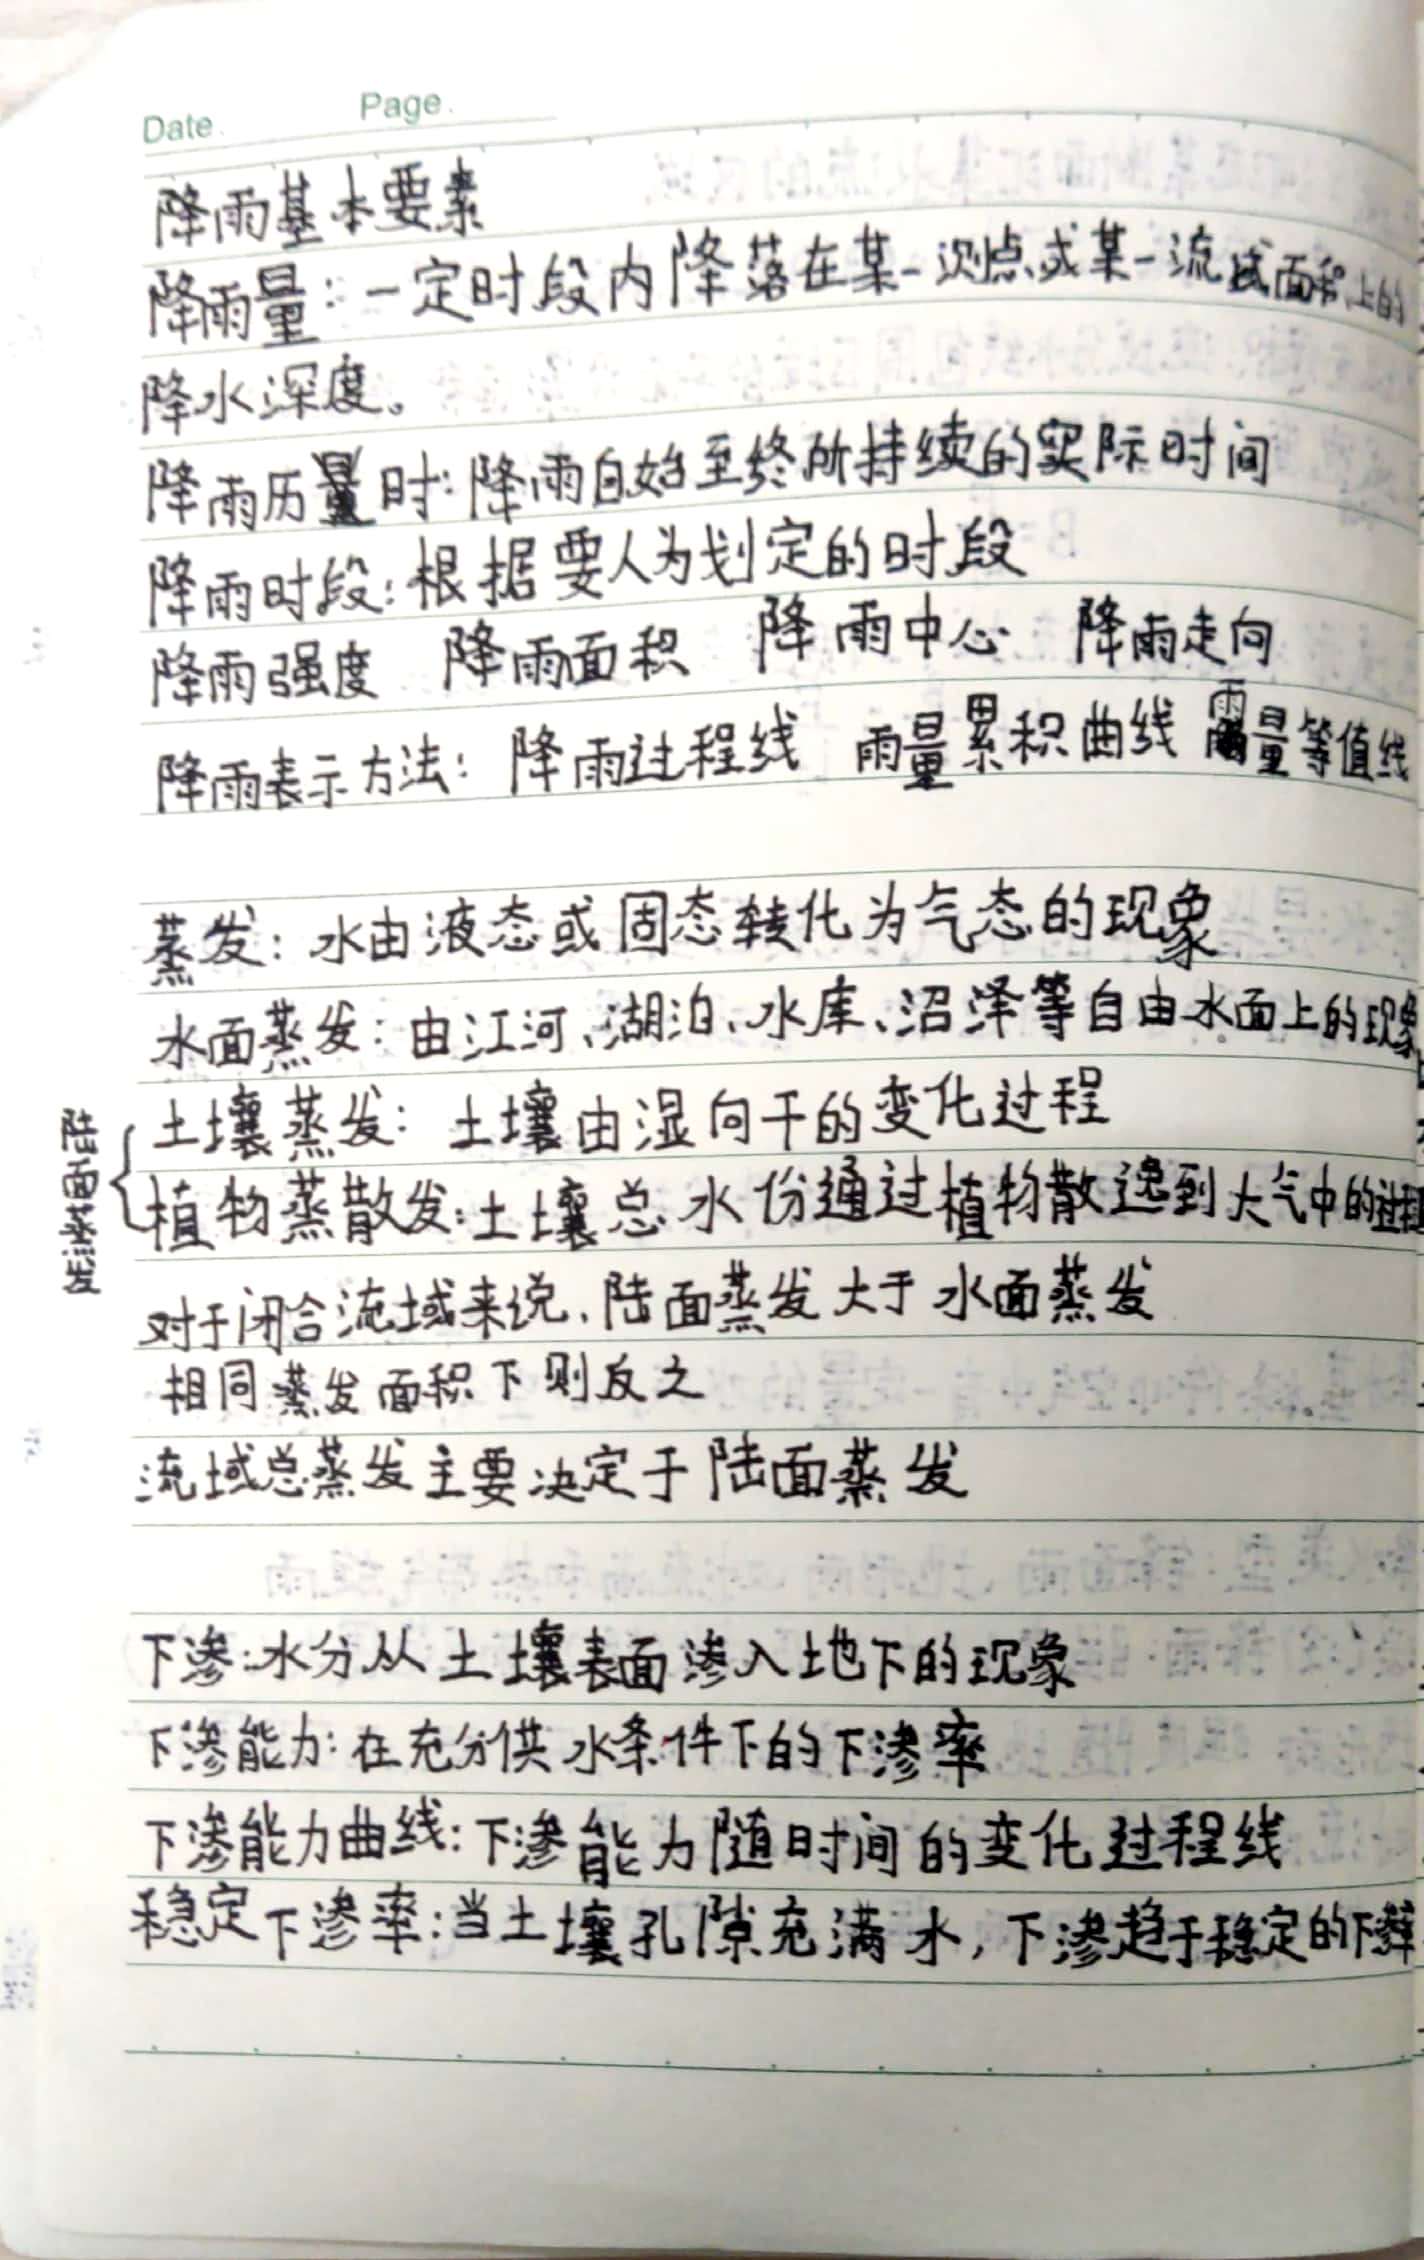 Date. Page.
降雨基本要素
降雨量:一定时段内降落在某一测点或某一流域面积上的
降水深度。
降雨历时:降雨自始至终所持续的实际时间
降雨时段:根据要人为划定的时段
降雨强度 降雨面积 降雨中心 降雨走向
降雨表示方法: 降雨过程线 雨量累积曲线 雨量等值线
蒸发: 水由液态或固态转化为气态的现象
水面蒸发: 由江河、湖泊、水库、沼泽等自由水面上的现象
陆面蒸发
土壤蒸发: 土壤由湿向干的变化过程
植物蒸散发:土壤总水份通过植物散逸到大气中的过程
对于闭合流域来说、陆面蒸发大于水面蒸发
相同蒸发面积下则反之
流域总蒸发主要决定于陆面蒸发
下渗:水分从土壤表面渗入地下的现象
下渗能力:在充分供水条件下的下渗率
下渗能力曲线:下渗能力随时间的变化过程线
稳定下渗率:当土壤孔隙充满水,下渗趋于稳定的下渗率